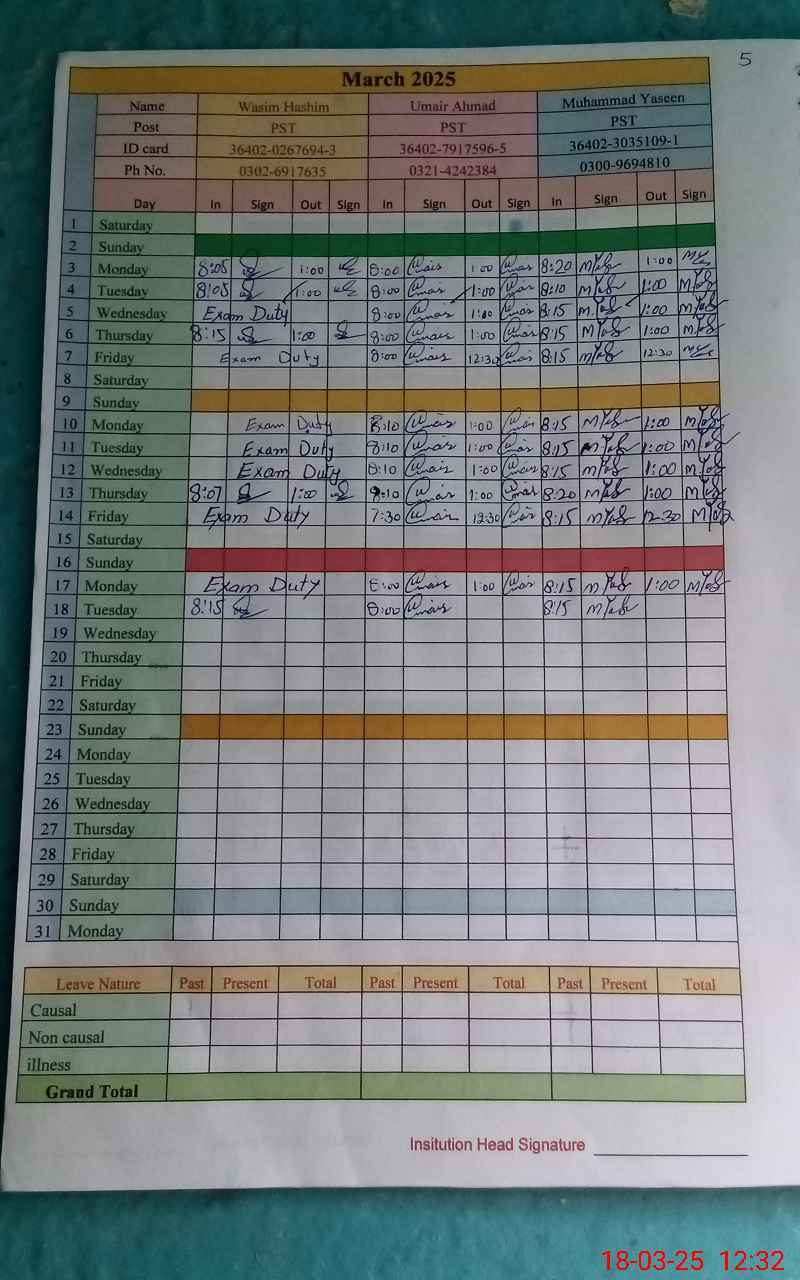 5
March 2025
Name Wasim Hashim Umair Ahmad Muhammad Yaseen
Post PST PST PST
ID card 36402-0267694-3 36402-7917596-5 36402-3035109-1
Ph No. 0302-6917635 0321-4242384 0300-9694810
Day In Sign Out Sign In Sign Out Sign In Sign Out Sign
1 Saturday
2 Sunday
3 Monday 8:05 1:00 8:00 1:00 8:20 1:00
4 Tuesday 8:05 1:00 8:00 1:00 8:10 1:00
5 Wednesday Exam Duty 8:00 1:00 8:15 1:00
6 Thursday 8:15 1:00 8:00 1:00 8:15 1:00
7 Friday Exam Duty 8:00 12:30 8:15 12:30
8 Saturday
9 Sunday
10 Monday Exam Duty 8:10 1:00 8:15 1:00
11 Tuesday Exam Duty 8:10 1:00 8:15 1:00
12 Wednesday Exam Duty 8:10 1:00 8:15 1:00
13 Thursday 8:07 1:00 1:00 8:20 1:00
14 Friday Exam Duty 7:30 12:30 8:15 12:30
15 Saturday
16 Sunday
17 Monday Exam Duty 8:00 1:00 8:15 1:00
18 Tuesday 8:15 8:00 8:15
19 Wednesday
20 Thursday
21 Friday
22 Saturday
23 Sunday
24 Monday
25 Tuesday
26 Wednesday
27 Thursday
28 Friday
29 Saturday
30 Sunday
31 Monday
Leave Nature Past Present Total Past Present Total Past Present Total
Causal
Non causal
illness
Grand Total
Insitution Head Signature
18-03-25 12:32